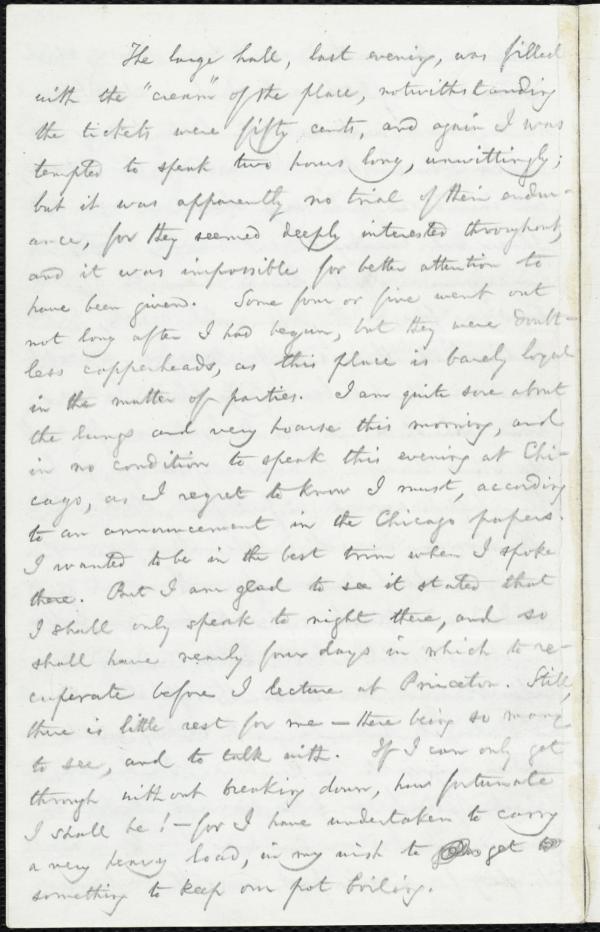 The large hall, last evening, was filled
with the "cream" of the place, notwithstanding
the tickets were fifty cents, and again I was
tempted to speak two hours long, unwittingly;
but it was apparently no trial of their endur-
ance, for they seemed deeply interested throughout,
and it was impossible for better attention to
have been given. Some four or five went out
not long after I had begun, but they were doubt-
less copperheads, as this place is barely loyal
in the matter of parties. I am quite sore about
the lungs and very hoarse this morning, and
in no condition to speak this evening at Chi-
cago, as I regret to know I must, according
to an announcement in the Chicago papers.
I wanted to be in the best trim when I spoke
there. But I am glad to see it stated that
I shall only speak to night there, and so
shall have nearly four days in which to re-
cuperate before I lecture at Princeton. Still,
there is little rest for me — there being so many
to see, and to talk with. If I can only get
through without breaking down, how fortunate
I shall be! — for I have undertaken to carry
a very heavy load, in my wish to get
something to keep our pot boiling.